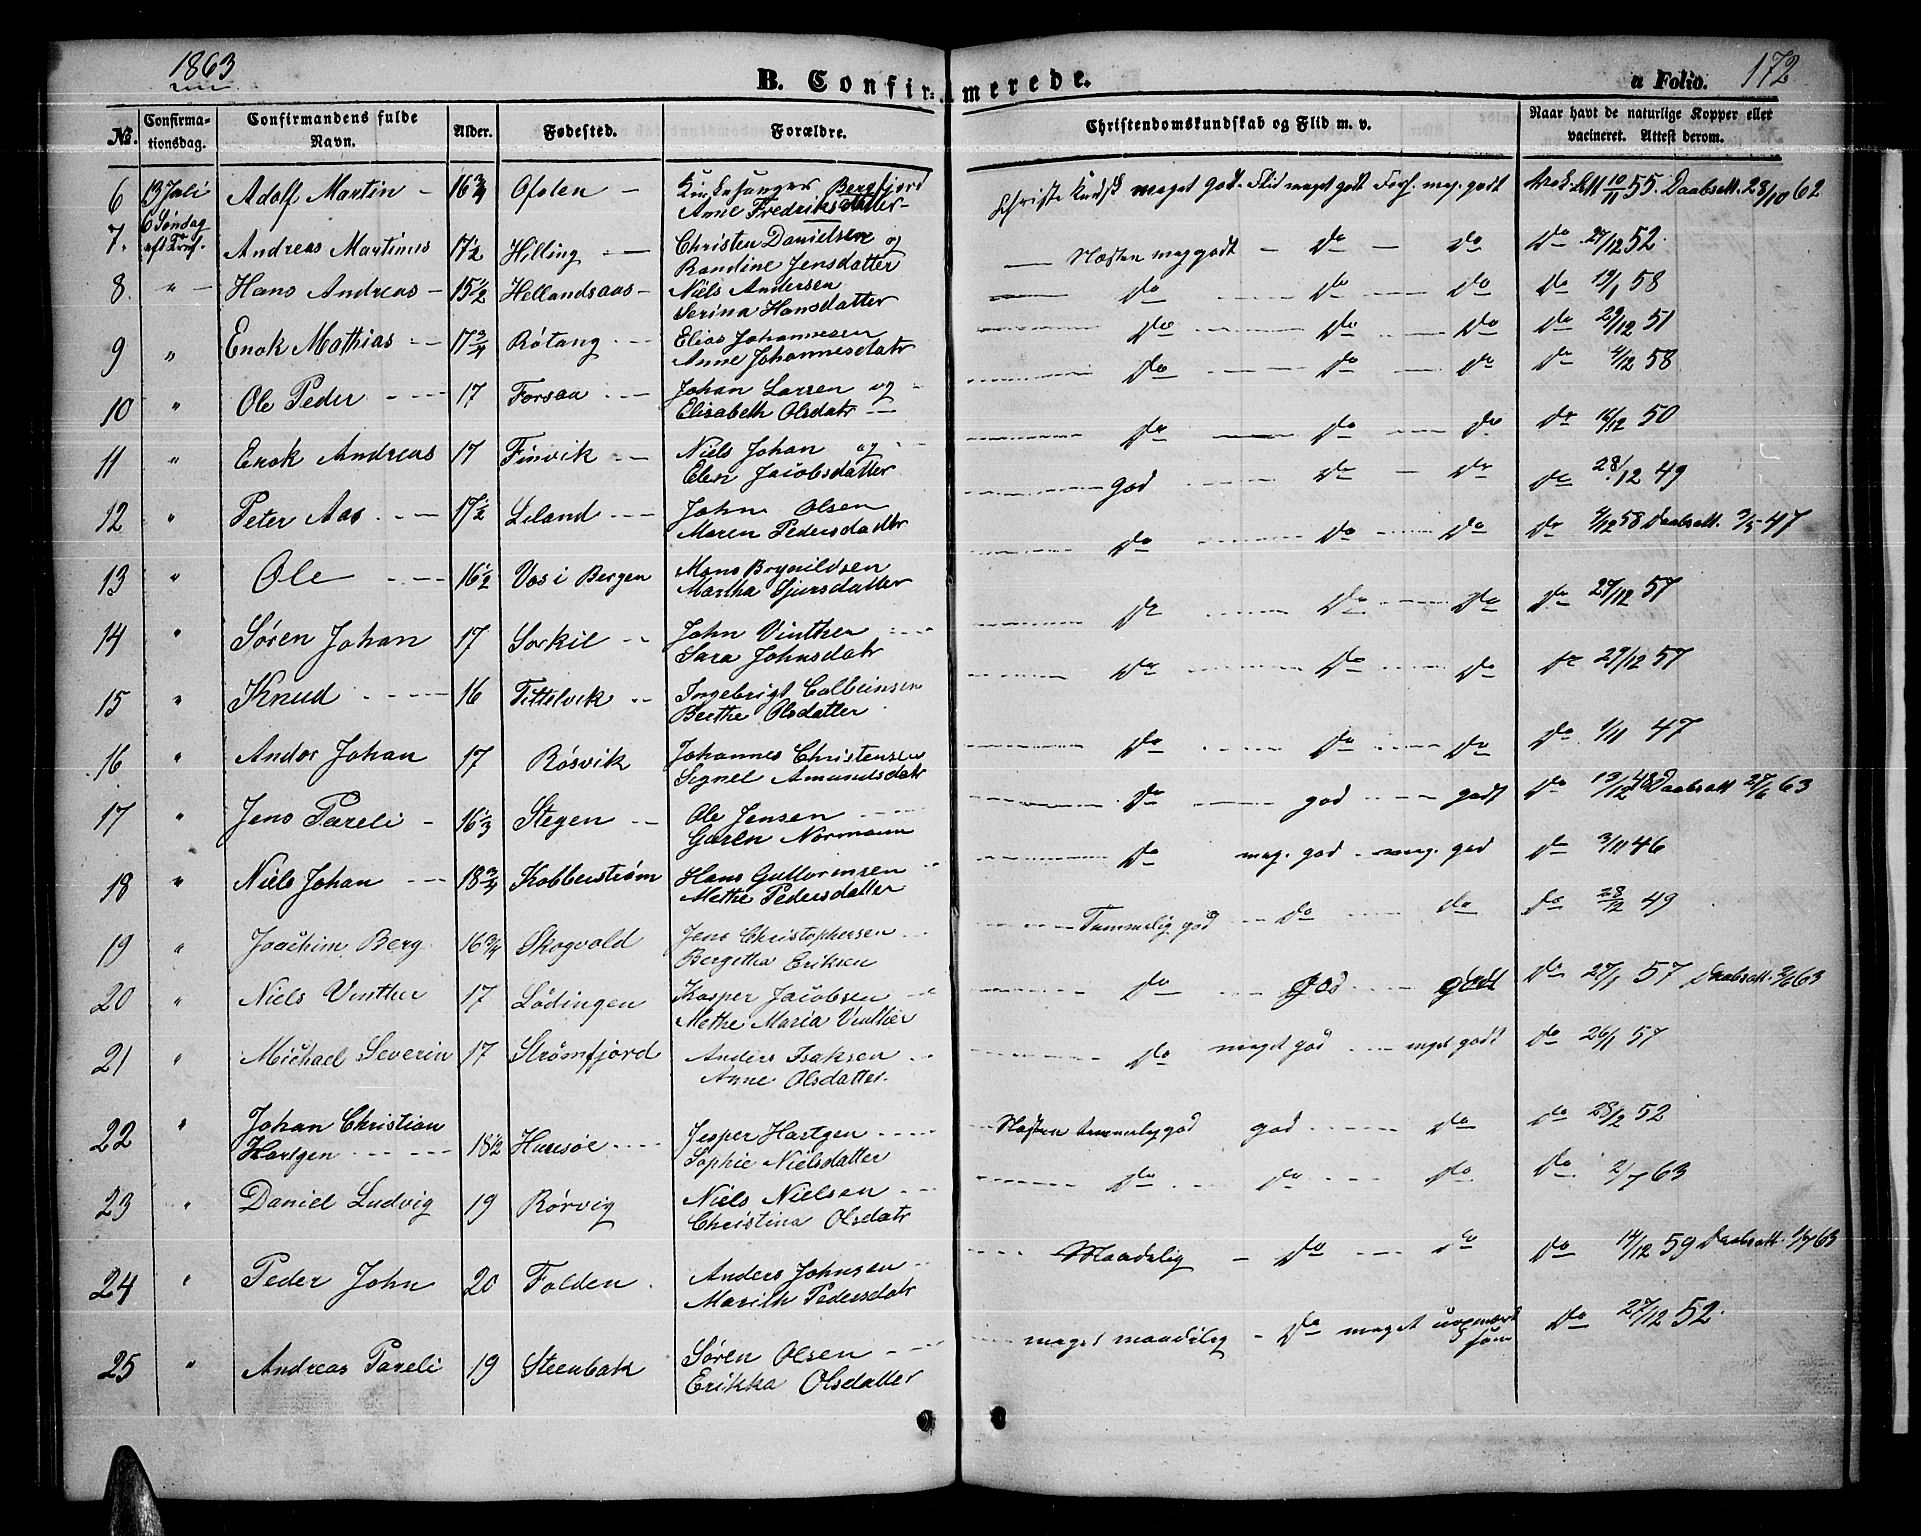 1863
B. Confirmerede.
a Folio. 172
No. Confirmationsdag. Confirmandens fulde Navn. Alder. Fødested. Forældre. Christendomskundskab og Flid m. v. Naar havt de naturlige Kopper eller vacineret. Attest derom.
6 13 Juli Adolf Martin 16 3/4 Ofoten Kirkesanger Bergfjord
Anne Fredriksdatter
meget god. Flid meget godt Forh. meg. godt 10/11 55. Daabsatt. 28/10 62
6 Søndag
7. aft Tref. Andreas Martinus 17 1/2 Hilling Christen Danielsen og
Randine Jensdatter
Næsten meg godt Do Do Do 27/12 52.
8 " Hans Andreas 15 1/2 Hellandsaas Niels Andersen
Serina Hansdatter
Do Do Do Do 13/1 58
9 " Enok Mathias 17 3/4 Røtang Elias Johannesen
Anne Johannesdatr
Do Do Do Do 29/12 51
10 " Ole Peder 17 Forsaa Johan Larsen og
Elisabeth Olsdatr
Do Do Do Do 4/12 58
11 " Enok Andreas 17 Finvik Niels Johan og
Elen Jacobsdatter
Do Do Do Do 16/12 50
12 " Peter Aas 17 1/2 Leland John Olsen
Maren Pedersdadtr
god Do Do Do 28/12 49
13 " Ole 16 1/2 Vos i Bergen Mons Brynildsen
Martha Sjursdatter
Do Do Do Do 4/12 58 Daabsatt. 3/5 47
14 " Søren Johan 17 Sørkil John Vinther
Sara Johnsdatr
Do Do Do Do 29/12 57
15 " Knud 16 Tittelvik Ingebrigt Colbeinsen
Berthe Olsdatter
Do Do Do Do 29/12 57
16 " Andor Johan 17 Røsvik Johannes Christensen
Signel Amundsdatr
Do Do Do Do 1/11 47
17 " Jens Pareli 16 1/3 Stegen Ole Jensen
Garen Normann
Do god godt Do 13/12 48 Daabsatt 28/6 63
18 " Niels Johan 18 3/4 Kobberstrøm Hans Guttormsen
Methe Pedersdatter
Do meg. god meg. god Do 3/11 46
19 " Joachim Berg 16 3/4 Skogvold Jens Christophersen
Bergitha Eriksen
Temmelig god Do Do Do 28/12 49
20 " Niels Vinther 17 Lødingen Kasper Jacobsen
Methe Maria Vinther
Do god godt Do 27/1 57 Daabsatt. 2/6 63
21 " Michael Severin 17 Strømfjord Anders Isaksen
Anne Olsdatter
Do meget god meget godt Do 26/1 57
22 " Johan Christian
Hartgen 18 1/2 Huresøe Jesper Hartgen
Sophie Nielsdatter
Næsten temmelig god god Do Do 28/2 52
23 " Daniel Ludvig 19 Rørvig Niels Nielsen
Christina Olsdatr
Do Do Do Do 2/7 63
24 " Peder John 20 Folden Anders Johnsen
Marith Pedersdatr
Maadelig Do Do Do 14/12 59 Daabsatt. 1/7 63
25 " Andreas Pareli 19 Steenbak Søren Olsen
Erikka Olsdatter
meget maadelig Do meget uopmærk
som Do 27/12 52.